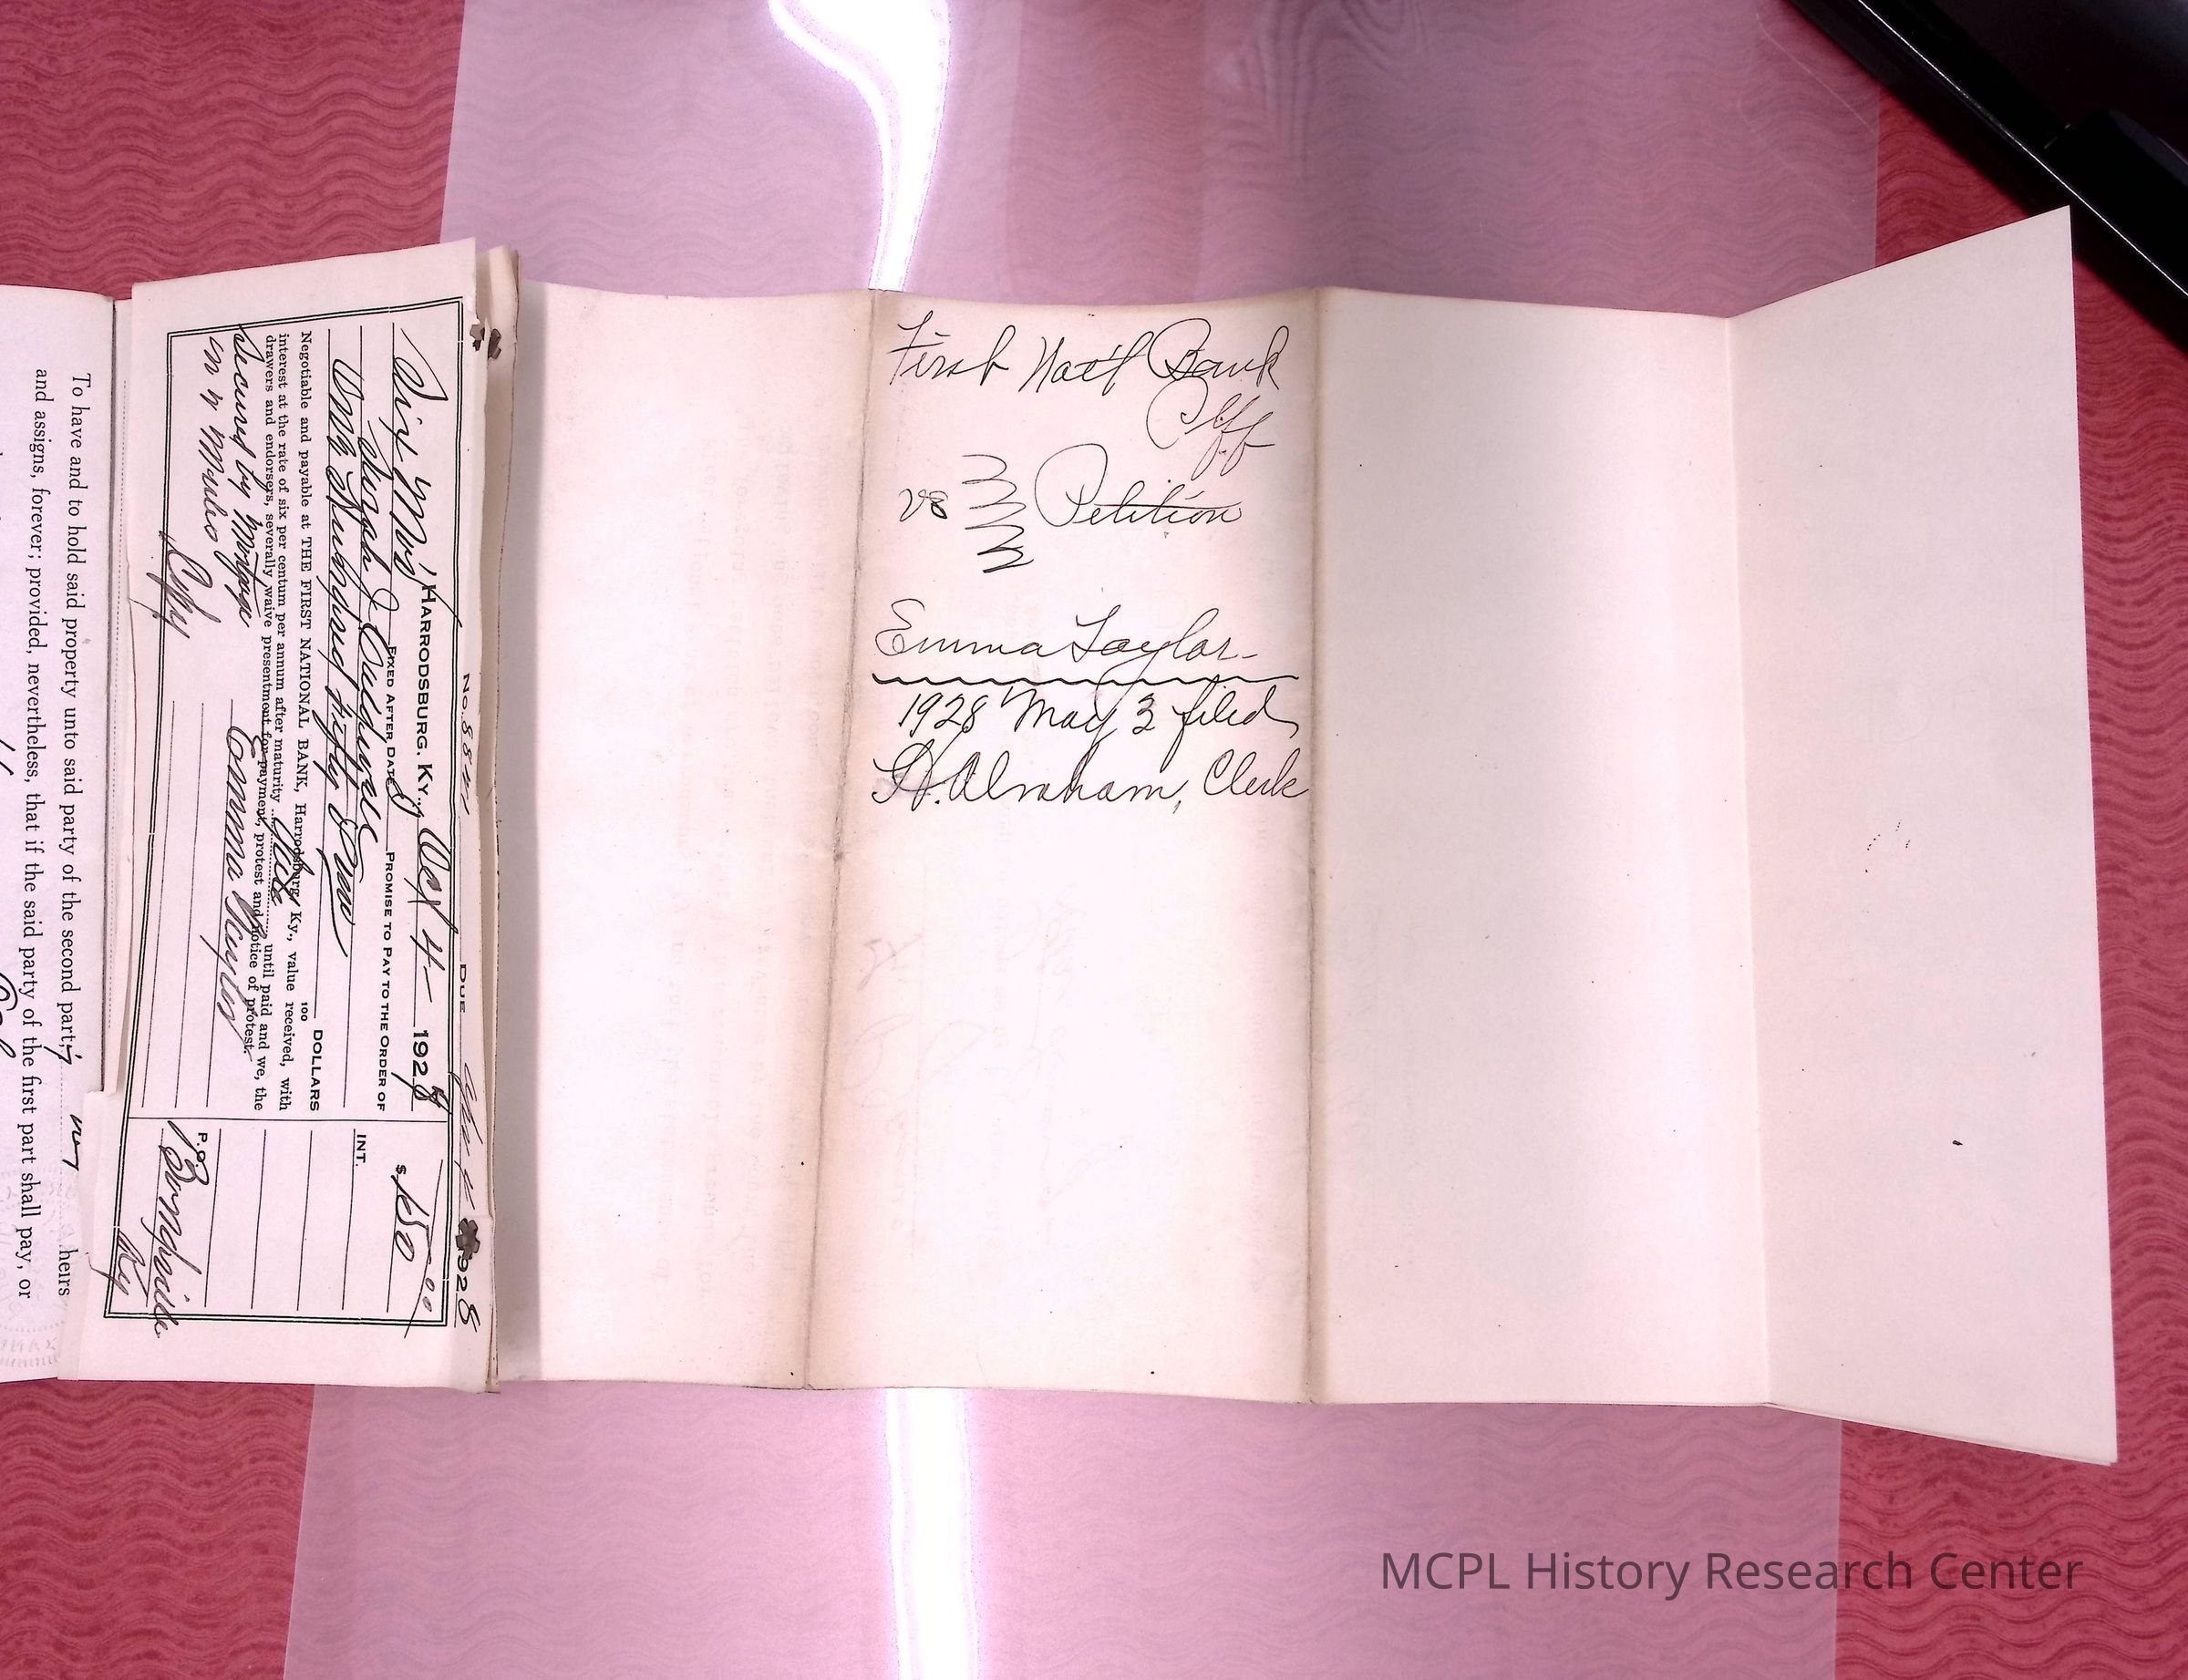 To have and to hold said property unto said party of the second part, heirs
and assigns, forever; provided, nevertheless, that if the said party of the first part shall pay, or
No. 8841 DUE 1928
HARRODSBURG, KY., Oct 4 1928 $150.00
Six Mos' FIXED AFTER DATE I PROMISE TO PAY TO THE ORDER OF
INT.
One Hundred Fifty DOLLARS
100
Negotiable and payable at THE FIRST NATIONAL BANK, Harrodsburg, Ky., value received, with
interest at the rate of six per centum per annum after maturity until paid and we, the
drawers and endorsers, severally waive presentment for payment, protest and notice of protest.
Secured by Mortgage Emma Taylor
on Mules
P.O. Bondville
Copy Ky
First Nat'l Bank
Plff
vs Petition
Emma Taylor
1928 May 3 filed
H. Abraham, Clerk
MCPL History Research Center